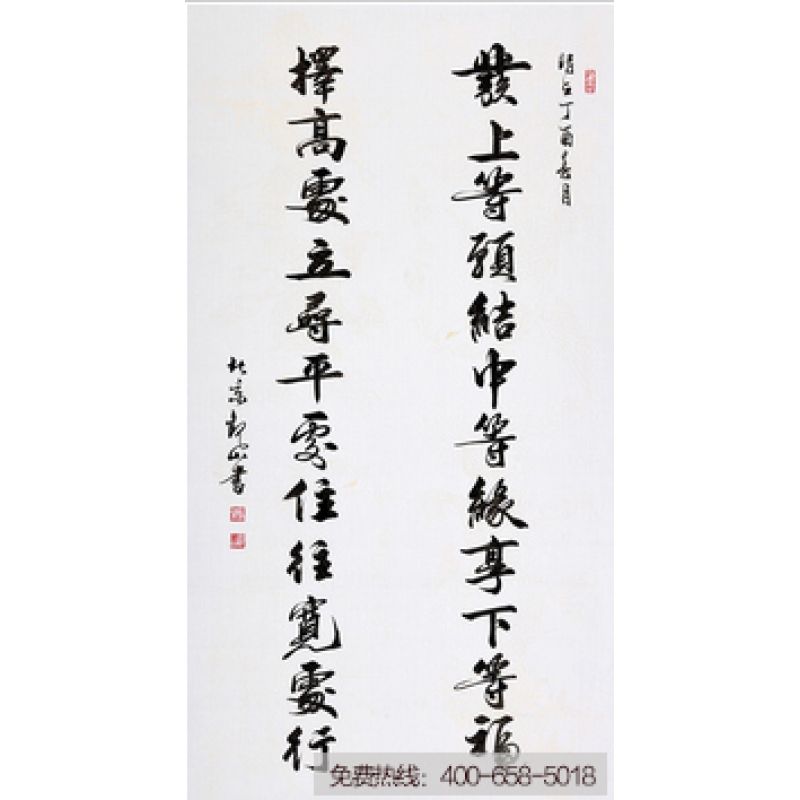 時在丁酉春月
發上等願結中等緣享下等福
擇高處立尋平處住往寬處行
北京 山書
免费热线：400-658-5018